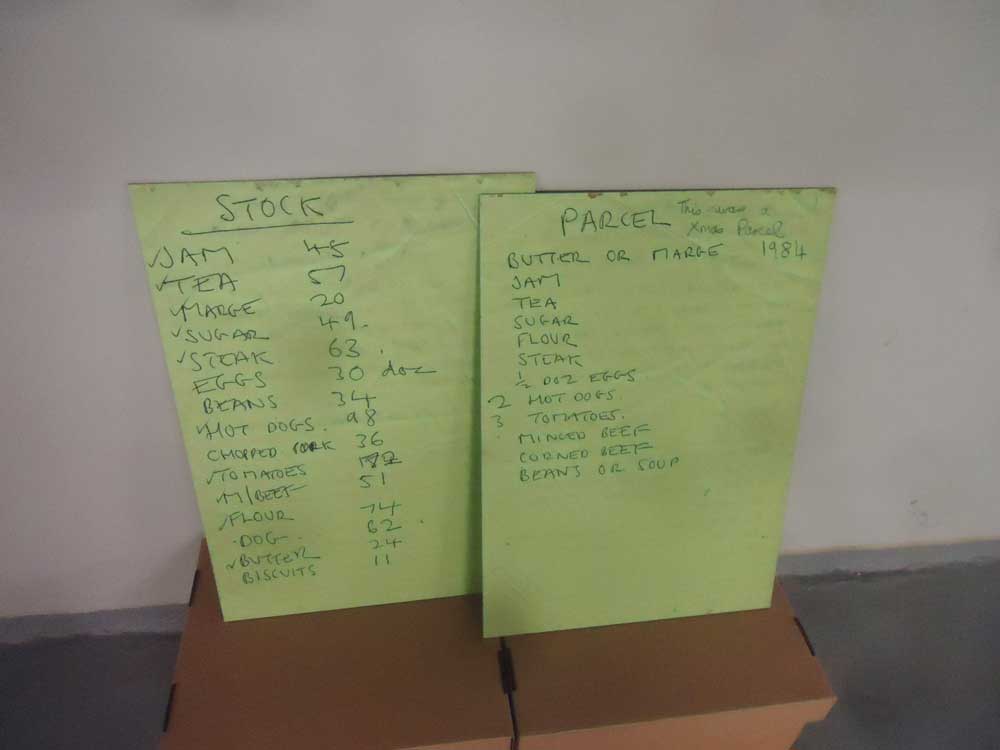 STOCK
✓JAM 45
✓TEA 57
✓MARGE 20
✓SUGAR 49.
✓STEAK 63.
EGGS 30 doz
BEANS 34
✓HOT DOGS. 98
CHOPPED PORK 36
✓TOMATOES
✓M/BEEF 51
✓FLOUR 74
DOG. 62
✓BUTTER 24
BISCUITS 11
PARCEL This was a
Xmas Parcel
1984
BUTTER OR MARGE
JAM
TEA
SUGAR
FLOUR
STEAK
½ DOZ EGGS
2 HOT DOGS.
3 TOMATOES.
MINCED BEEF
CORNED BEEF
BEANS OR SOUP